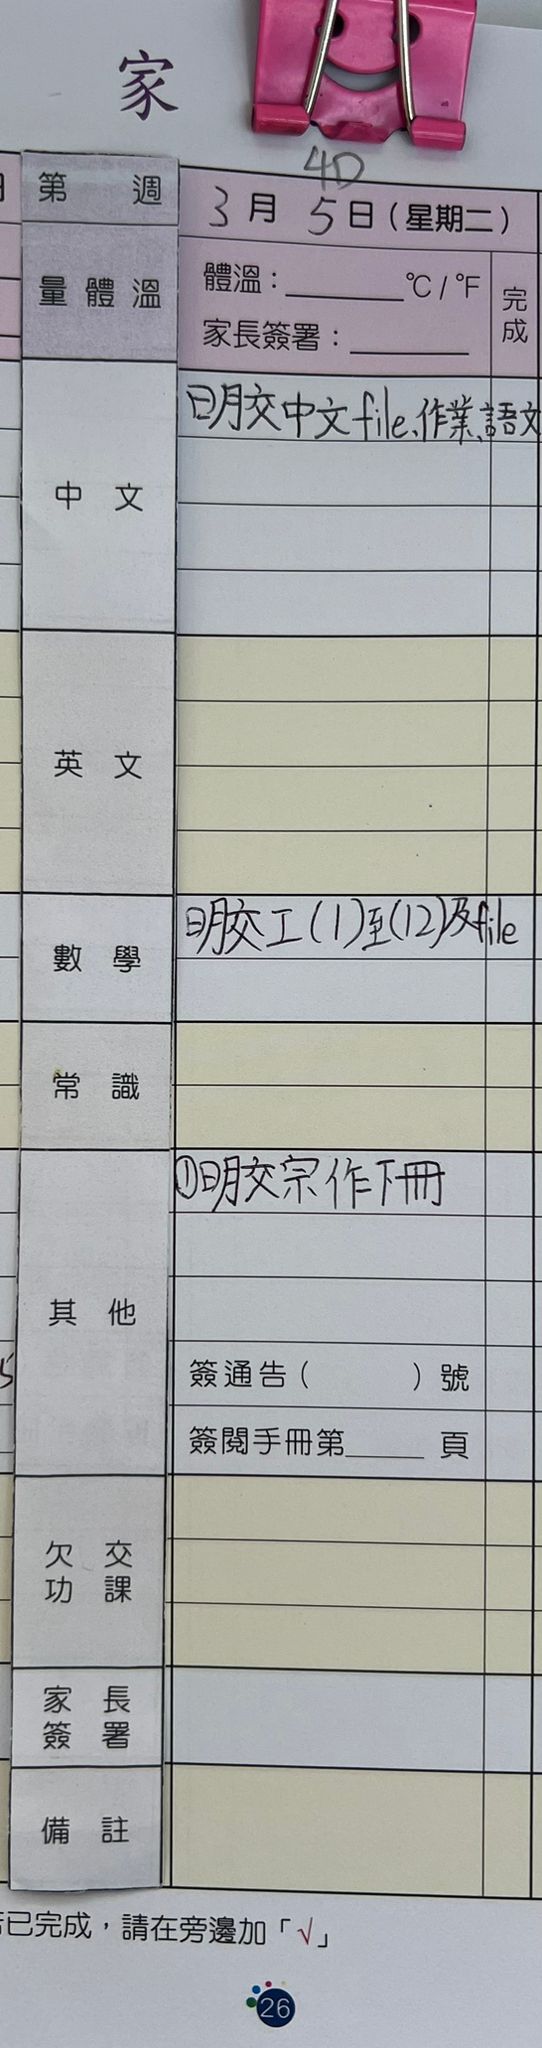 家
4D
第 週
3月5日(星期二)
量體溫
體溫：______°C / °F
家長簽署：______
完成
中文
明交中文file、作業、語文
英文
數學
明交工(1)至(12)及file
常識
其他
①明交宗作下冊
簽通告( )號
簽閱手冊第____頁
欠交功課
家長簽署
備註
已完成，請在旁邊加「√」
26